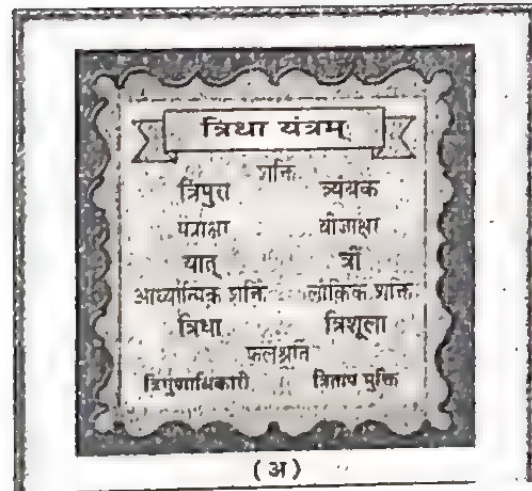 त्रिधा यंत्रम्
शक्ति
त्रिपुरा त्र्यंबक
यात् त्रीं
आध्यात्मिक शक्ति लौकिक शक्ति
त्रिधा त्रिशूला
फलश्रुति
त्रिगुणाधिकारी त्रिताप मुक्ति
(अ)